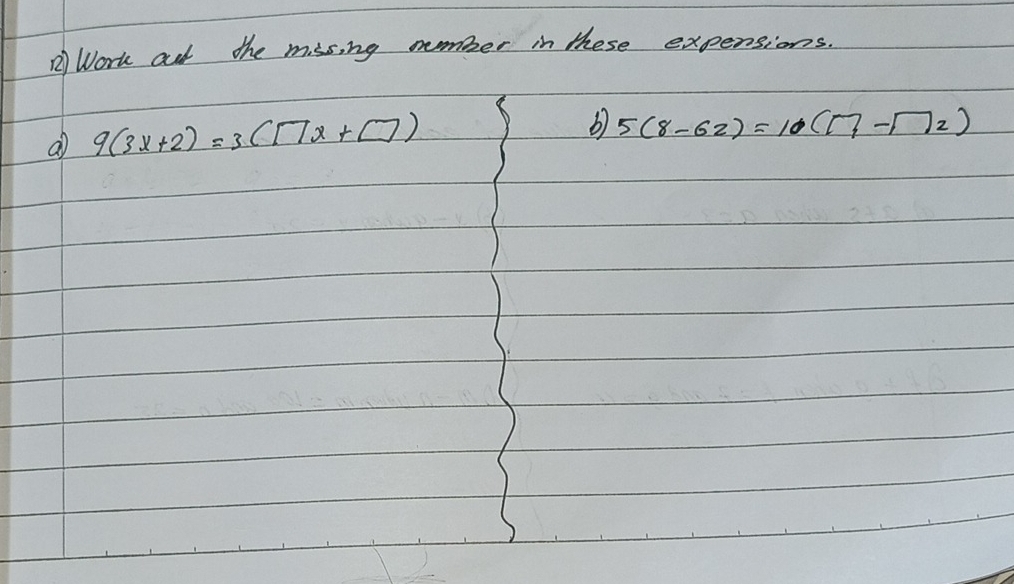 12) Work out the missing number in these expensions.
a) 9(3x+2) = 3(□x + □)
b) 5(8-6z) = 10(□ - □z)